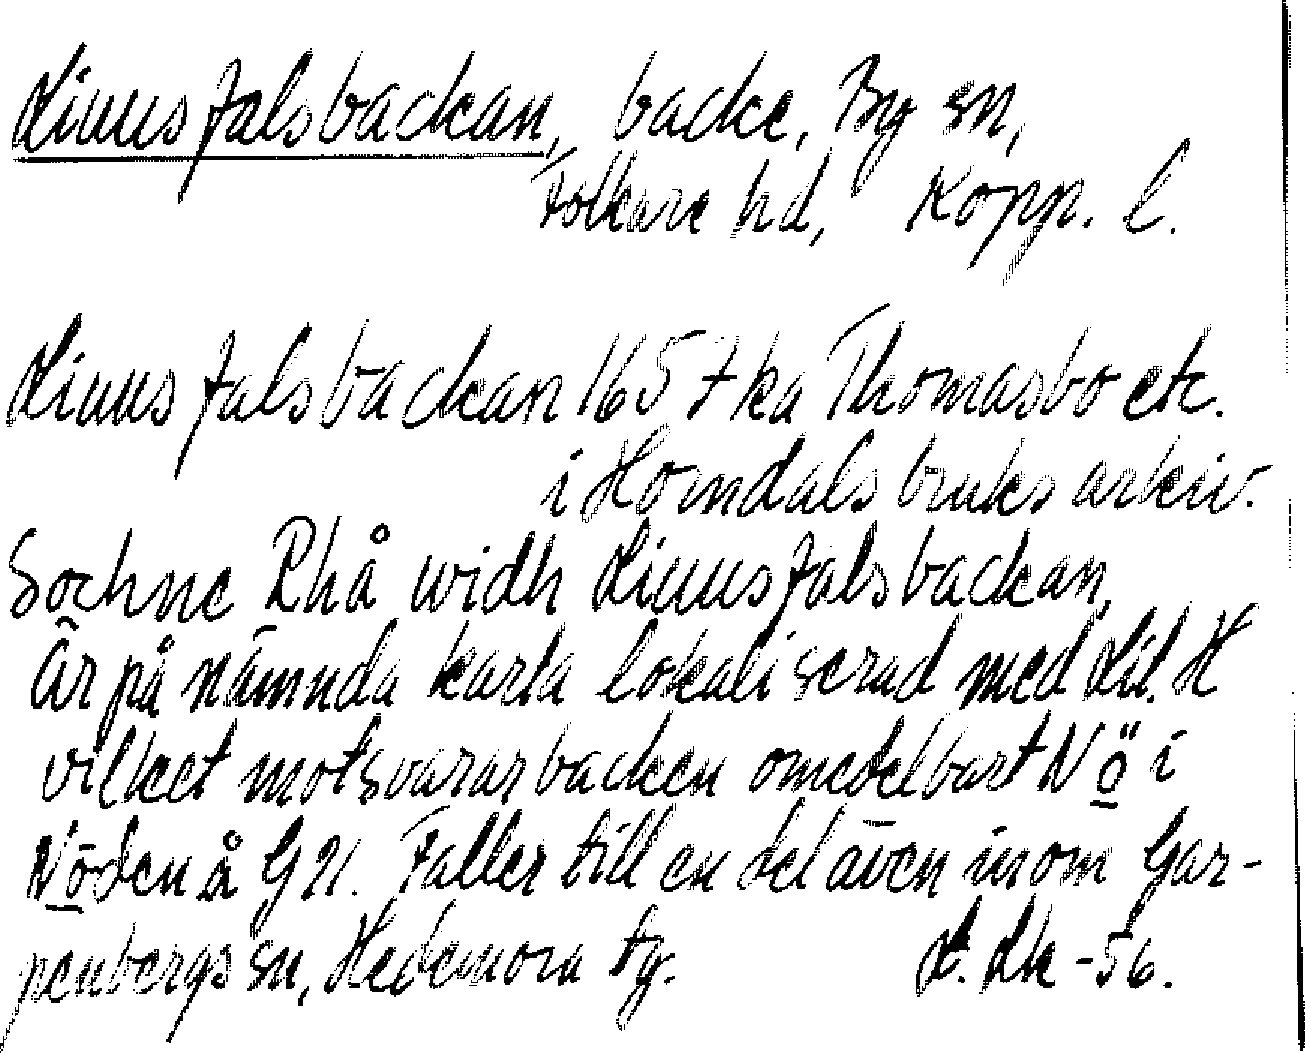 Linusfalsbackan, backe, By sn,
Folkare hd, Kopp. l.
Linusfalsbackan 1657 ka Thomasbo etc.
i Horndals bruks arkiv.
Sochne Rhå widh Linusfalsbackan,
Är på nämnda karta lokaliserad med Litt. H
vilket motsvarar backen omedelbart N ö i
Nöden å G 21. Faller till en del även inom Gar-
penbergs sn, Hedemora tg.
-56.